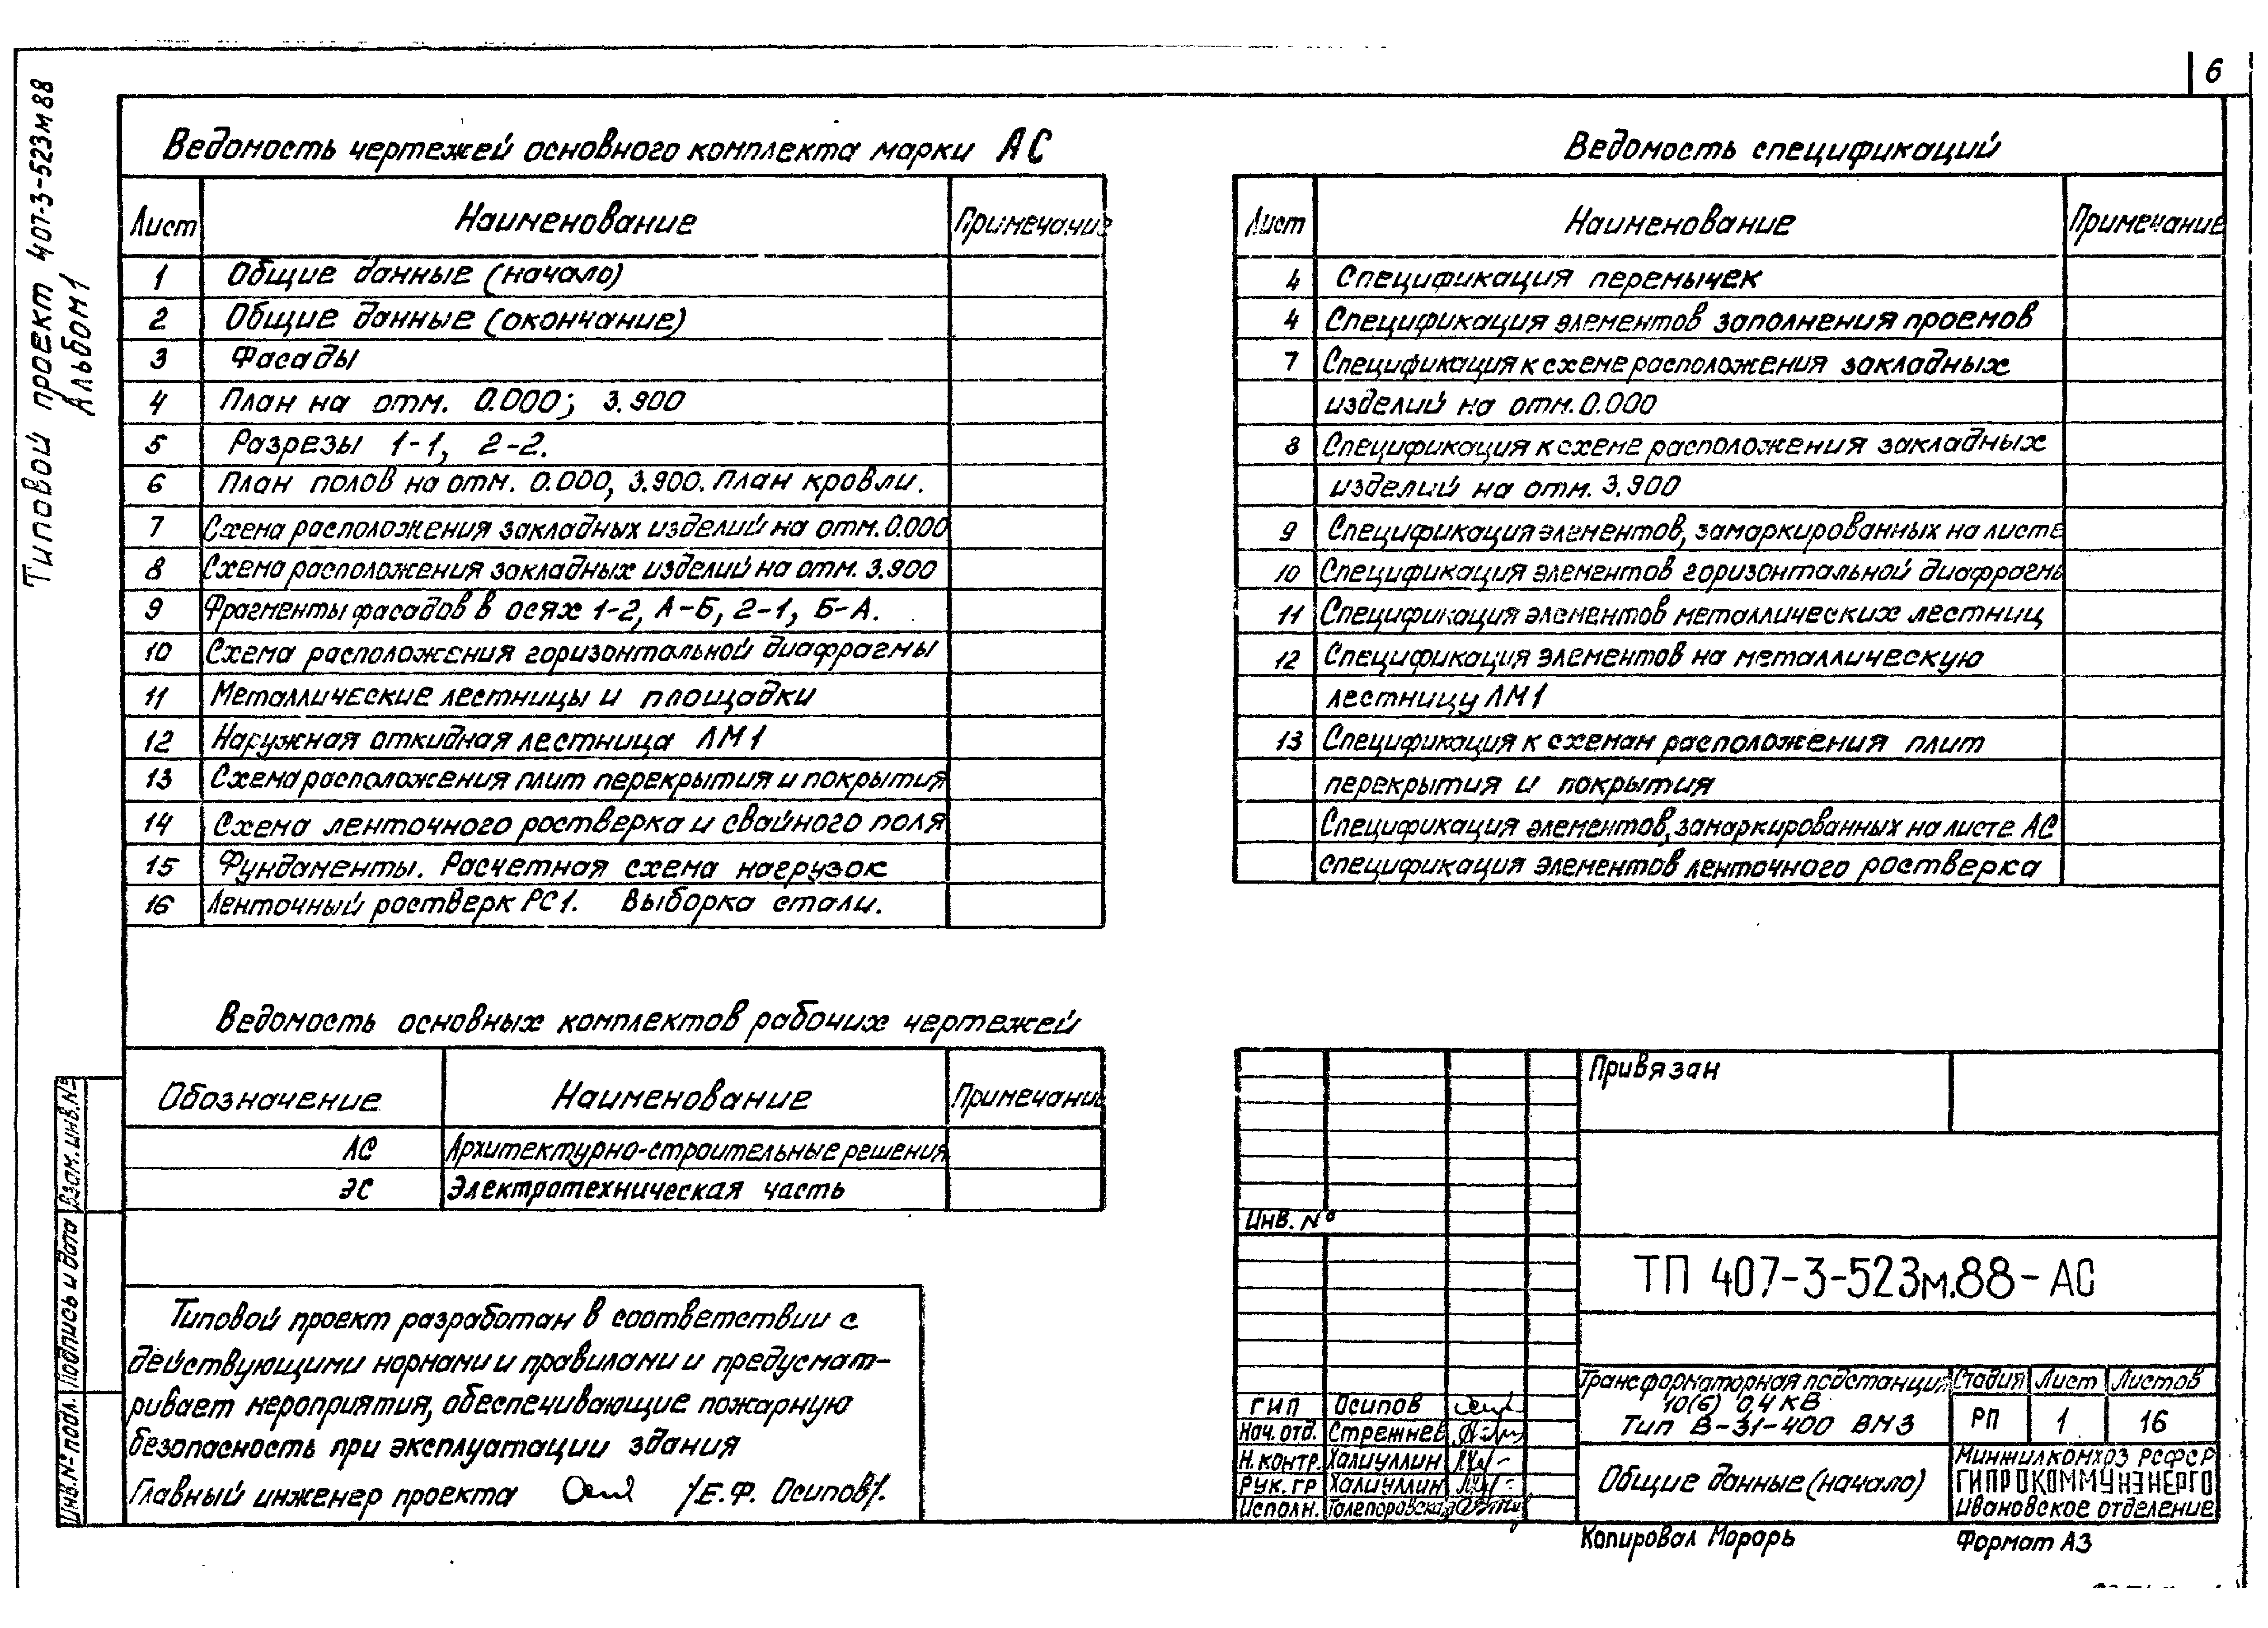 6
Типовой проект 407-3-523м88
Альбом 1
Ведомость чертежей основного комплекта марки АС
Лист Наименование Примечание
1 Общие данные (начало)
2 Общие данные (окончание)
3 Фасады
4 План на отм. 0.000; 3.900
5 Разрезы 1-1, 2-2.
6 План полов на отм. 0.000, 3.900. План кровли.
7 Схема расположения закладных изделий на отм. 0.000
8 Схема расположения закладных изделий на отм. 3.900
9 Фрагменты фасадов в осях 1-2, А-Б, 2-1, Б-А.
10 Схема расположения горизонтальной диафрагмы
11 Металлические лестницы и площадки
12 Наружная откидная лестница ЛМ1
13 Схема расположения плит перекрытия и покрытия
14 Схема ленточного ростверка и свайного поля
15 Фундаменты. Расчетная схема нагрузок
16 Ленточный ростверк РС1. Выборка стали.
Ведомость спецификаций
Лист Наименование Примечание
4 Спецификация перемычек
4 Спецификация элементов заполнения проемов
7 Спецификация к схеме расположения закладных
изделий на отм. 0.000
8 Спецификация к схеме расположения закладных
изделий на отм. 3.900
9 Спецификация элементов, замаркированных на листе
10 Спецификация элементов горизонтальной диафрагмы
11 Спецификация элементов металлических лестниц
12 Спецификация элементов на металлическую
лестницу ЛМ1
13 Спецификация к схемам расположения плит
перекрытия и покрытия
Спецификация элементов, замаркированных на листе АС
спецификация элементов ленточного ростверка
Ведомость основных комплектов рабочих чертежей
Обозначение Наименование Примечание
АС Архитектурно-строительные решения
ЭС Электротехническая часть
Типовой проект разработан в соответствии с
действующими нормами и правилами и предусмат-
ривает мероприятия, обеспечивающие пожарную
безопасность при эксплуатации здания
Главный инженер проекта /Е.Ф. Осипов/.
Взам. инв. №
Подпись и дата
Инв. № подл.
Привязан
Инв. №
ТП 407-3-523м.88-АС
Трансформаторная подстанция
10(6) 0,4 кВ
Тип В-31-400 ВМЗ
Стадия Лист Листов
РП 1 16
ГИП Осипов
Нач. отд. Стрежнев
Н. контр. Халиуллин
Рук. гр Халиуллин
Исполн. Толепоровская
Общие данные (начало)
Минжилкомхоз РСФСР
ГИПРОКОММУНЭНЕРГО
Ивановское отделение
Копировал Морарь Формат А3